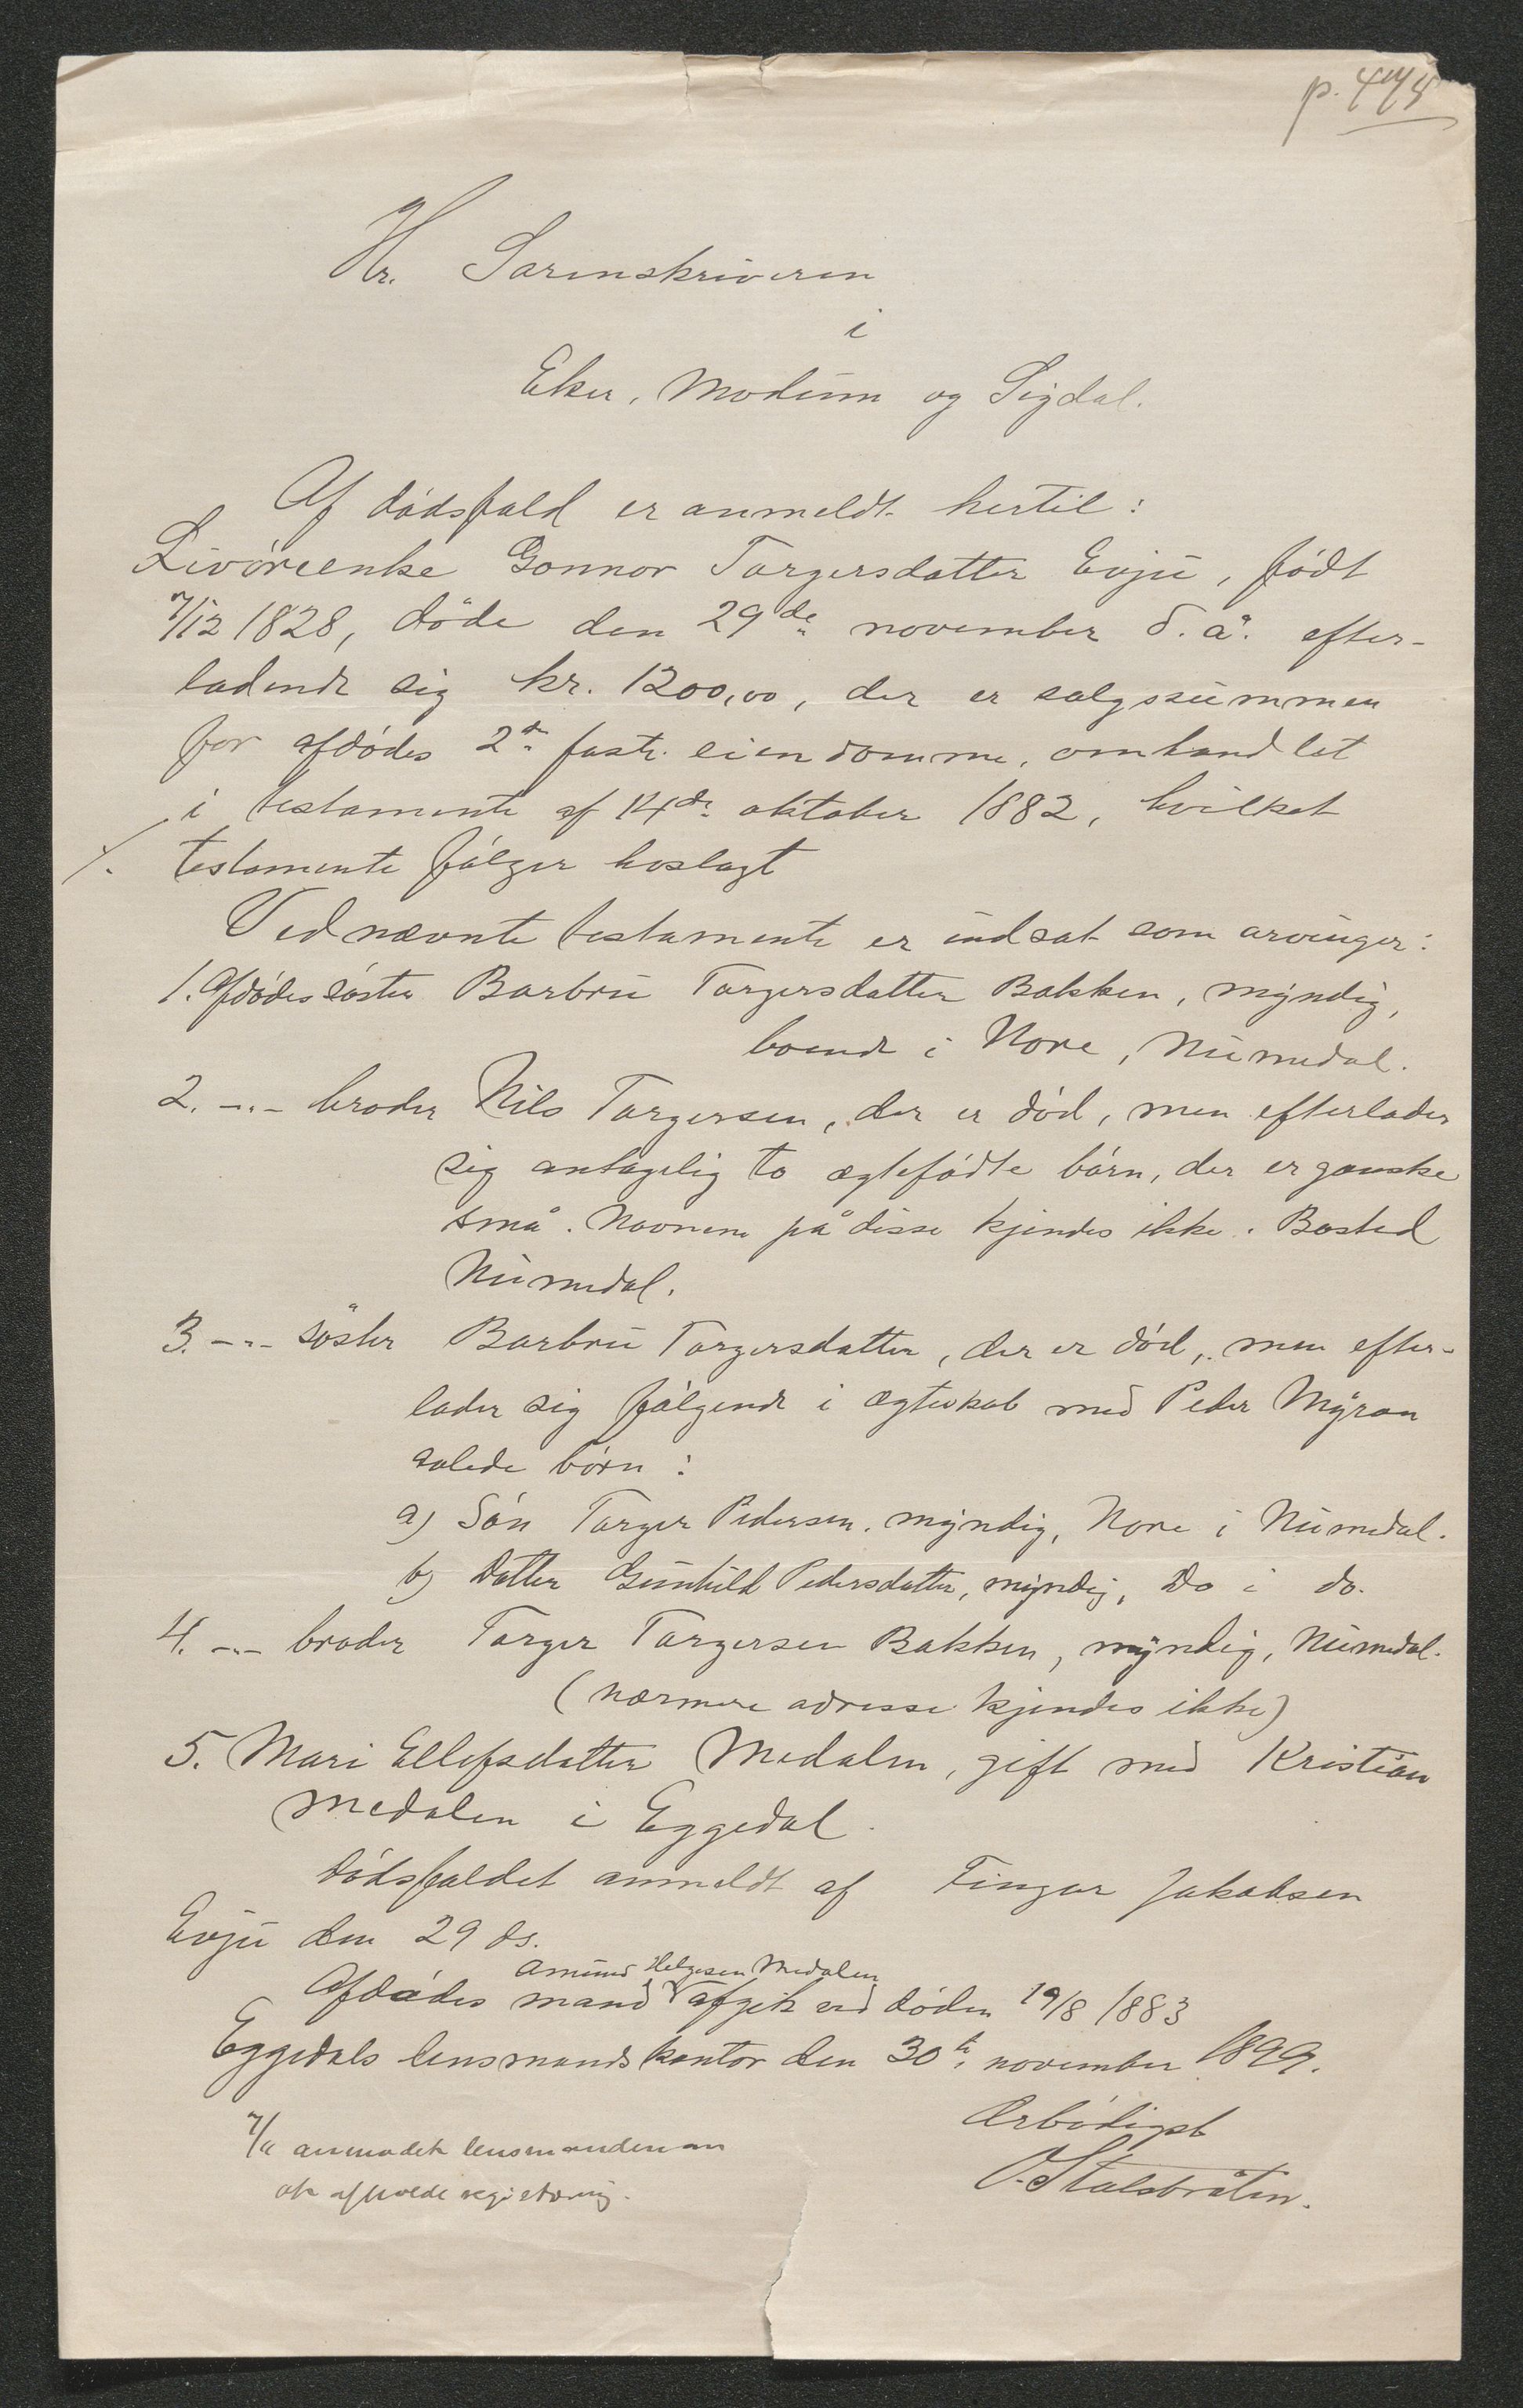 p. 448
Hr. Sorenskriveren
i
Eker, Modum og Sigdal.
Af dödsfald er anmeldt hertil:
Livöreenke Gonnor Torgersdatter Evju, födt
7/12 1828, döde den 29de november d. å. efter-
ladende sig kr. 1200,00, der er salgssummen
for afdödes 2de faste eiendomme, omhandlet
i testamente af 14de oktober 1882, hvilket
/. testamente fölger hoslagt
Ved nævnte testamente er indsat som arvinger:
1. Afdödes söster Barbru Torgersdatter Bakken, myndig,
boende i Nore, Numedal.
2. -"- broder Nils Torgersen, der er död, men efterlader
sig antagelig to ægtefödte börn, der er ganske
små. Navnene på disse kjendes ikke. Bosted
Numedal.
3. -"- söster Barbru Torgersdatter, der er död, men efter-
lader sig fölgende i ægteskab med Peder Myran
avlede börn:
a) Sön Torger Pedersen, myndig, Nore i Numedal.
b) Datter Gunhild Pedersdatter, myndig, Do i do.
4. -"- broder Torger Torgersen Bakken, myndig, Numedal.
(nærmere adresse kjendes ikke)
5. Mari Ellefsdatter Medalen, gift med Kristian
Medalen i Eggedal.
Dödsfaldet anmeldt af Fingar Jakobsen
Evju den 29 ds.
Amund Helgesen Medalen
Afdödes mand afgik ved döden 19/8 1883
Eggedals lensmandskontor den 30te november 1899.
Ærbödigst
O. Stalsbråten.
anmodet lensmanden om
at afholde registrering.